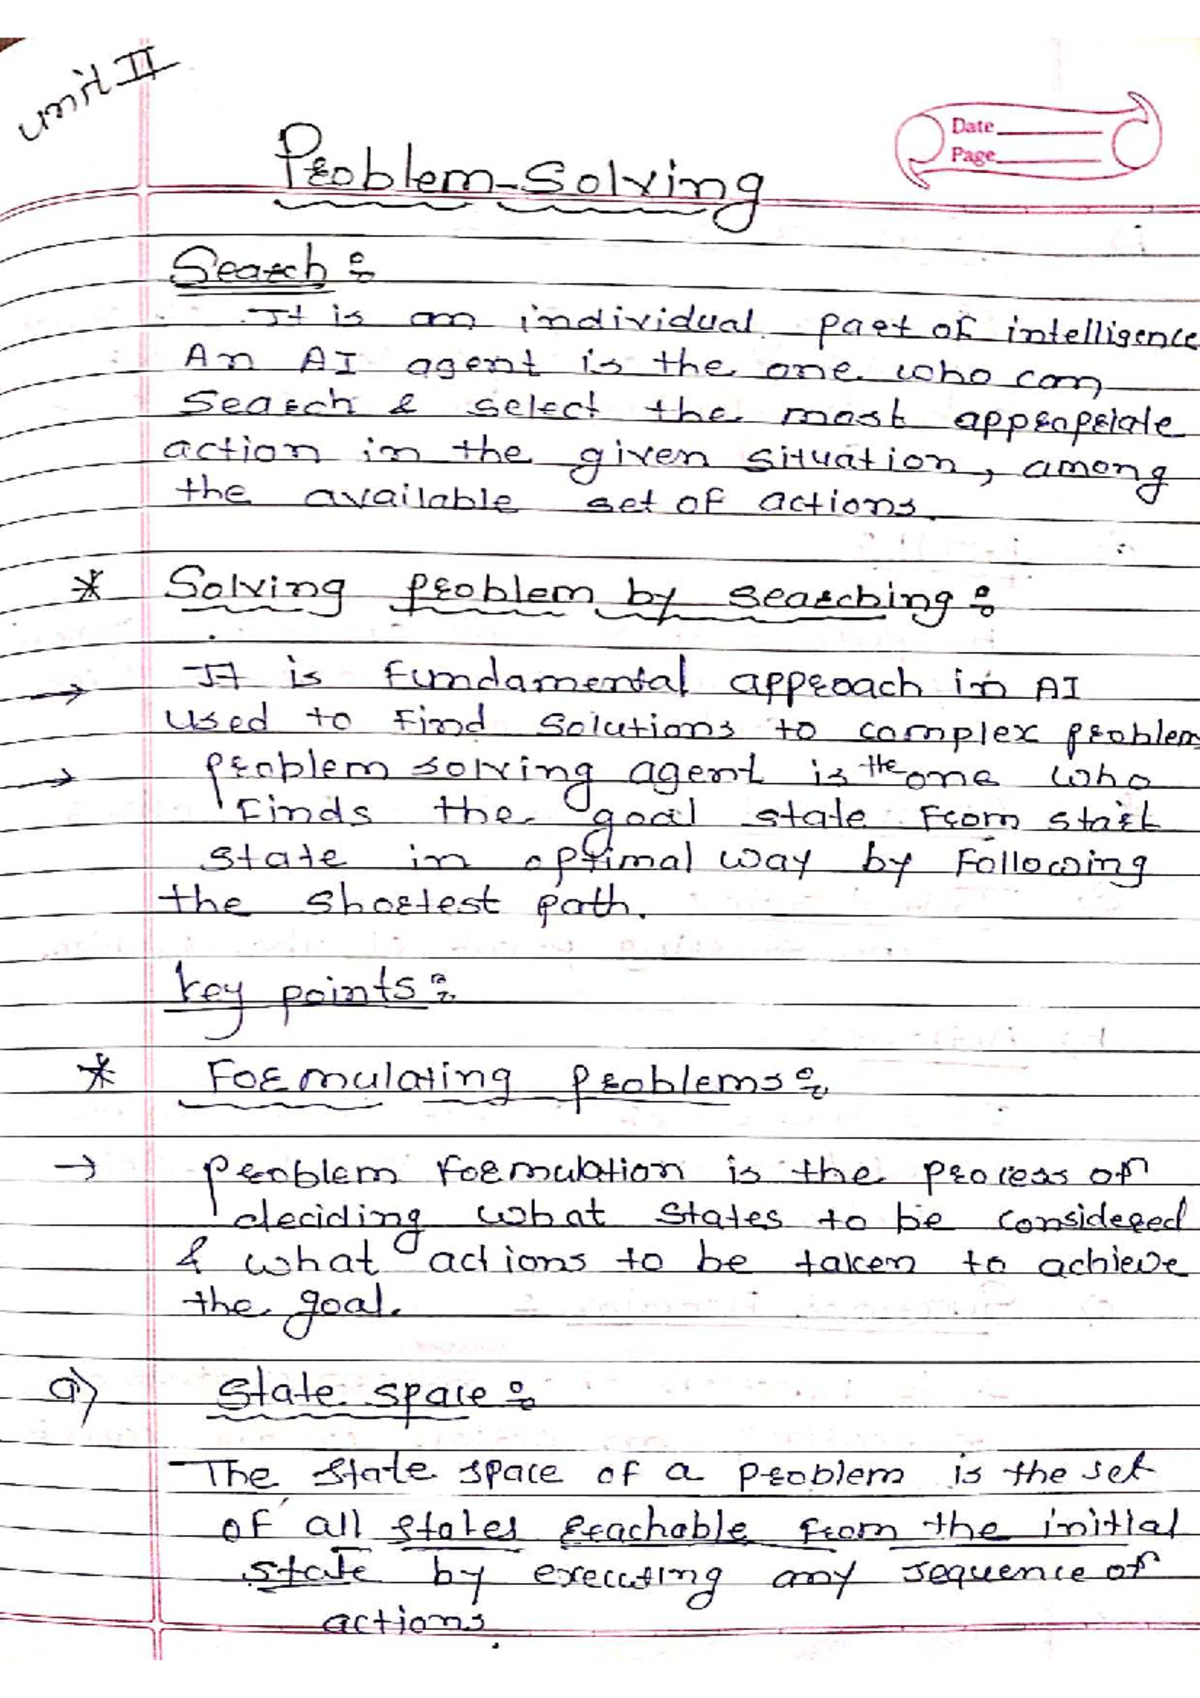 Unit II
Date
Page
Problem-Solving
Search :
It is an individual part of intelligence
An AI agent is the one who can
Search & select the most appropriate
action in the given situation, among
the available set of actions.
* Solving problem by searching :
→ It is fundamental approach in AI
used to find solutions to complex problem
→ problem solving agent is the one who
finds the goal state from start
state in optimal way by following
the shortest path.
key points :
* Formulating problems :
→ problem formulation is the process of
deciding what states to be considered
& what actions to be taken to achieve
the goal.
a) State space :
The state space of a problem is the set
of all states reachable from the initial
state by executing any sequence of
actions.